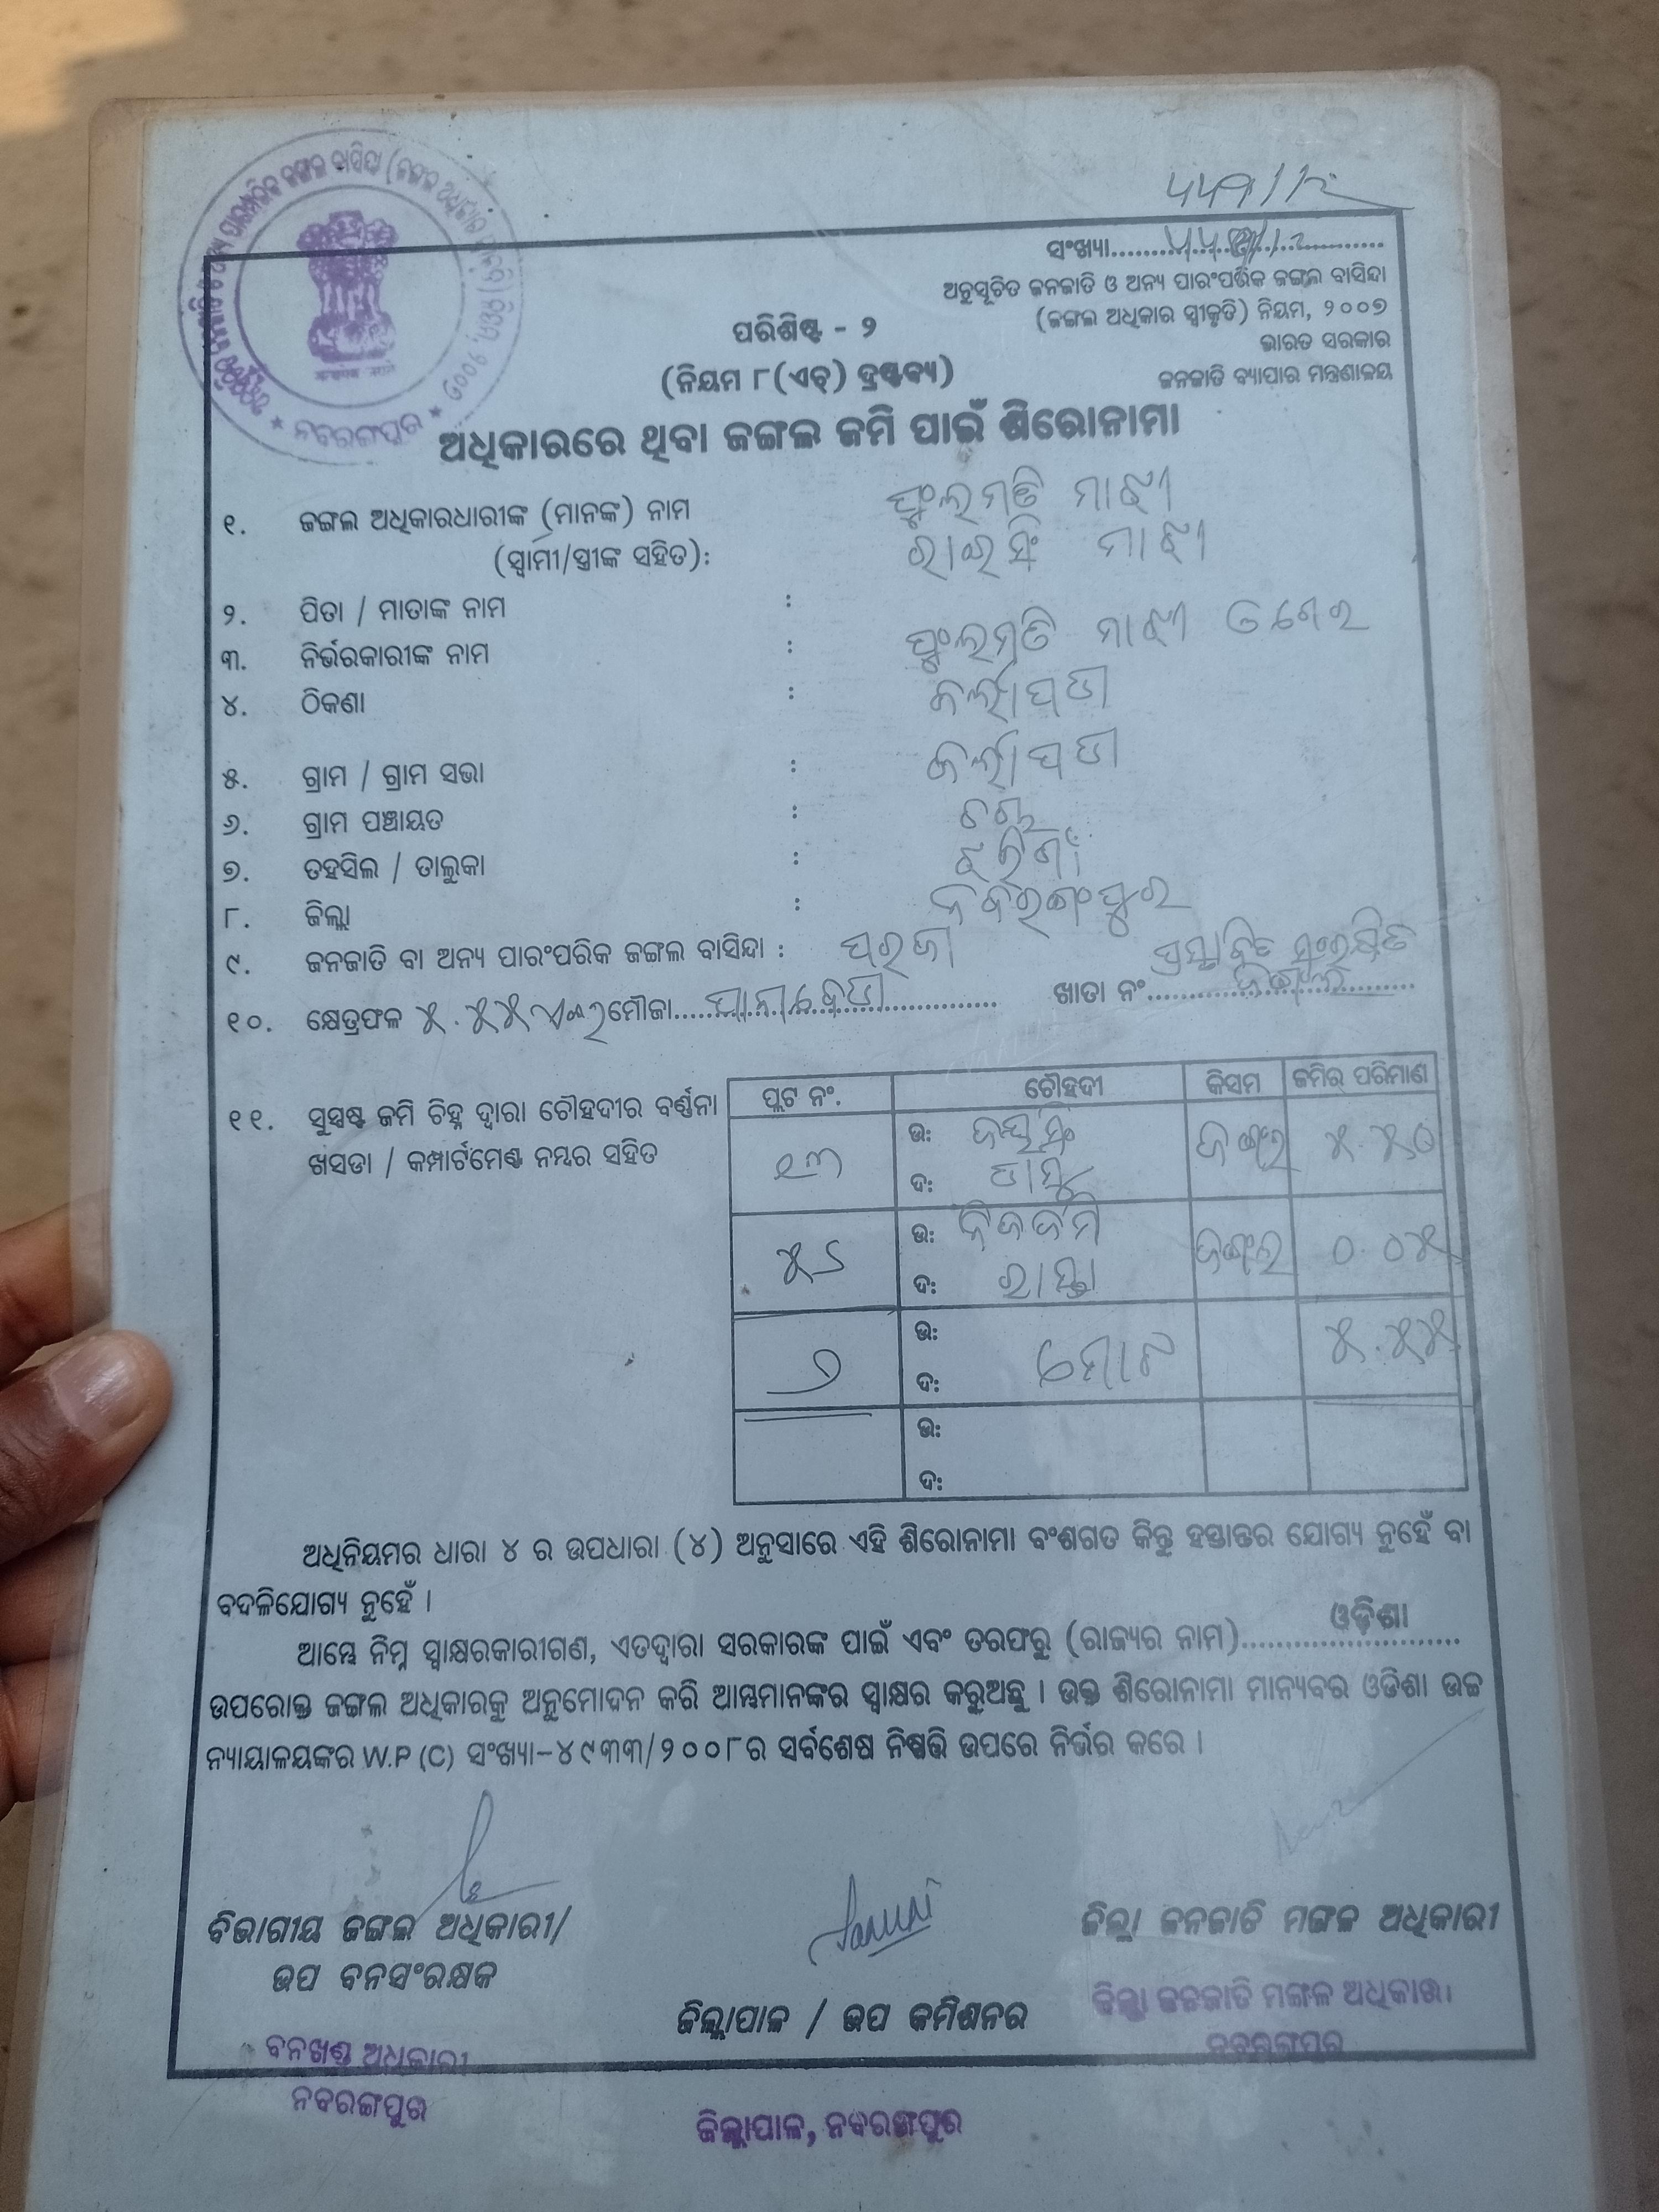 ସଂଖ୍ୟା
ଅନୁସୂଚିତ ଜନଜାତି ଓ ଅନ୍ୟ ପାରଂପରିକ ଜଙ୍ଗଲ ବାସିନ୍ଦା
(ଜଙ୍ଗଲ ଅଧିକାର ସ୍ୱୀକୃତି) ନିୟମ, ୨୦୦୭
ଭାରତ ସରକାର
ଜନଜାତି ବ୍ୟାପାର ମନ୍ତ୍ରଣାଳୟ
ପରିଶିଷ୍ଟ - ୨
(ନିୟମ ୮(ଏଚ୍) ଦ୍ରଷ୍ଟବ୍ୟ)
ନବରଙ୍ଗପୁର
ଅଧିକାରରେ ଥିବା ଜଙ୍ଗଲ ଜମି ପାଇଁ ଶିରୋନାମା
୧. ଜଙ୍ଗଲ ଅଧିକାରଧାରୀଙ୍କ (ମାନଙ୍କ) ନାମ ଫୁଲମତି ମାଝୀ
(ସ୍ୱାମୀ/ସ୍ତ୍ରୀଙ୍କ ସହିତ): ରାଇସିଂ ମାଝୀ
୨. ପିତା / ମାତାଙ୍କ ନାମ :
୩. ନିର୍ଭରକାରୀଙ୍କ ନାମ : ଫୁଲମତି ମାଝୀ
୪. ଠିକଣା :
୫. ଗ୍ରାମ / ଗ୍ରାମ ସଭା :
୬. ଗ୍ରାମ ପଞ୍ଚାୟତ :
୭. ତହସିଲ / ତାଲୁକା : ଝରିଗାଁ
୮. ଜିଲ୍ଲା : ନବରଙ୍ଗପୁର
୯. ଜନଜାତି ବା ଅନ୍ୟ ପାରଂପରିକ ଜଙ୍ଗଲ ବାସିନ୍ଦା : ପରଜା
୧୦. କ୍ଷେତ୍ରଫଳ ୫.୫୫ ମୌଜା ଖାତା ନଂ ପ୍ରସ୍ତାବିତ ସଂରକ୍ଷିତ ଜଙ୍ଗଲ
୧୧. ସୁସ୍ପଷ୍ଟ ଜମି ଚିହ୍ନ ଦ୍ୱାରା ଚୌହଦୀର ବର୍ଣ୍ଣନା
ଖସଡା / କମ୍ପାର୍ଟମେଣ୍ଟ ନମ୍ବର ସହିତ
ପ୍ଲଟ ନଂ. ଚୌହଦୀ କିସମ ଜମିର ପରିମାଣ
ଉ: ଜୟସିଂ ଜଙ୍ଗଲ ୫.୫୦
ଦ:
ଉ: ନିଜଜମି ଜଙ୍ଗଲ ୦.୦୫
ଦ: ରାସ୍ତା
୨ ଉ: ମୋଟ ୫.୫୫
ଦ:
ଉ:
ଦ:
ଅଧିନିୟମର ଧାରା ୪ ର ଉପଧାରା (୪) ଅନୁସାରେ ଏହି ଶିରୋନାମା ବଂଶଗତ କିନ୍ତୁ ହସ୍ତାନ୍ତର ଯୋଗ୍ୟ ନୁହେଁ ବା
ବଦଳିଯୋଗ୍ୟ ନୁହେଁ ।
ଆମ୍ଭେ ନିମ୍ନ ସ୍ୱାକ୍ଷରକାରୀଗଣ, ଏତଦ୍ୱାରା ସରକାରଙ୍କ ପାଇଁ ଏବଂ ତରଫରୁ (ରାଜ୍ୟର ନାମ) ଓଡ଼ିଶା
ଉପରୋକ୍ତ ଜଙ୍ଗଲ ଅଧିକାରକୁ ଅନୁମୋଦନ କରି ଆମ୍ଭମାନଙ୍କର ସ୍ୱାକ୍ଷର କରୁଅଛୁ । ଉକ୍ତ ଶିରୋନାମା ମାନ୍ୟବର ଓଡିଶା ଉଚ୍ଚ
ନ୍ୟାୟାଳୟଙ୍କର W.P (C) ସଂଖ୍ୟା-୪୯୩୩/୨୦୦୮ର ସର୍ବଶେଷ ନିଷ୍ପତ୍ତି ଉପରେ ନିର୍ଭର କରେ ।
ବିଭାଗୀୟ ଜଙ୍ଗଲ ଅଧିକାରୀ/
ଉପ ବନସଂରକ୍ଷକ
ଜିଲ୍ଲା ଜନଜାତି ମଙ୍ଗଳ ଅଧିକାରୀ
ଜିଲ୍ଲାପାଳ / ଉପ କମିଶନର
ଜିଲ୍ଲା ଜନଜାତି ମଙ୍ଗଳ ଅଧିକାରୀ
ନବରଙ୍ଗପୁର
ବନଖଣ୍ଡ ଅଧିକାରୀ
ନବରଙ୍ଗପୁର
ଜିଲ୍ଲାପାଳ, ନବରଙ୍ଗପୁର